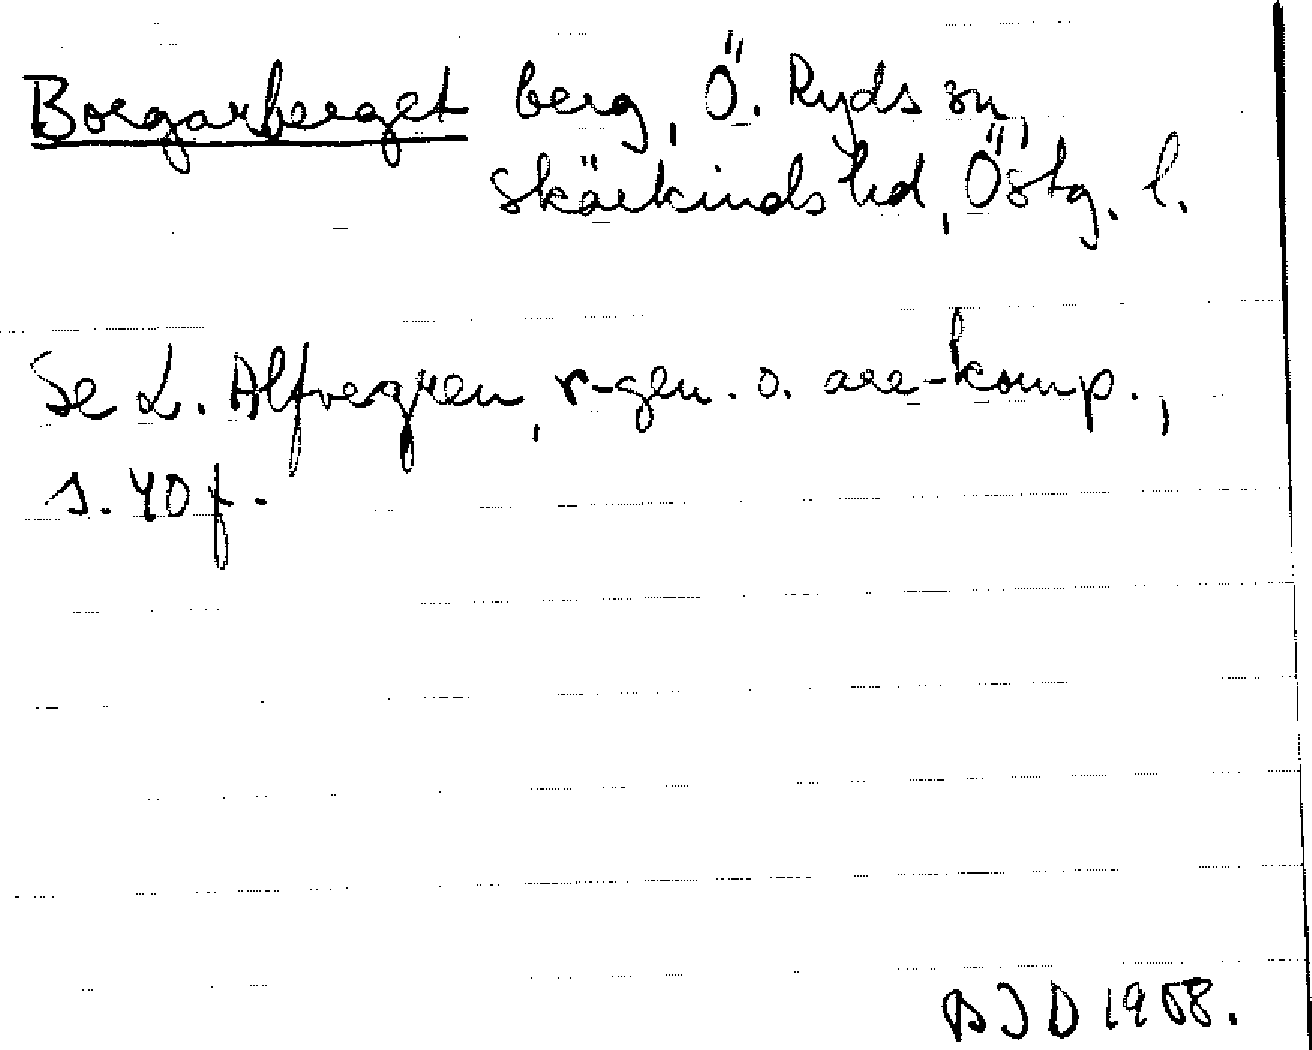 Borgarberget berg, Ö. Ryds sn,
Skärkinds hd, Östg. l.
Se L. Alfvegren, r-gen. o. are-komp.,
s. 40 f.
1958.